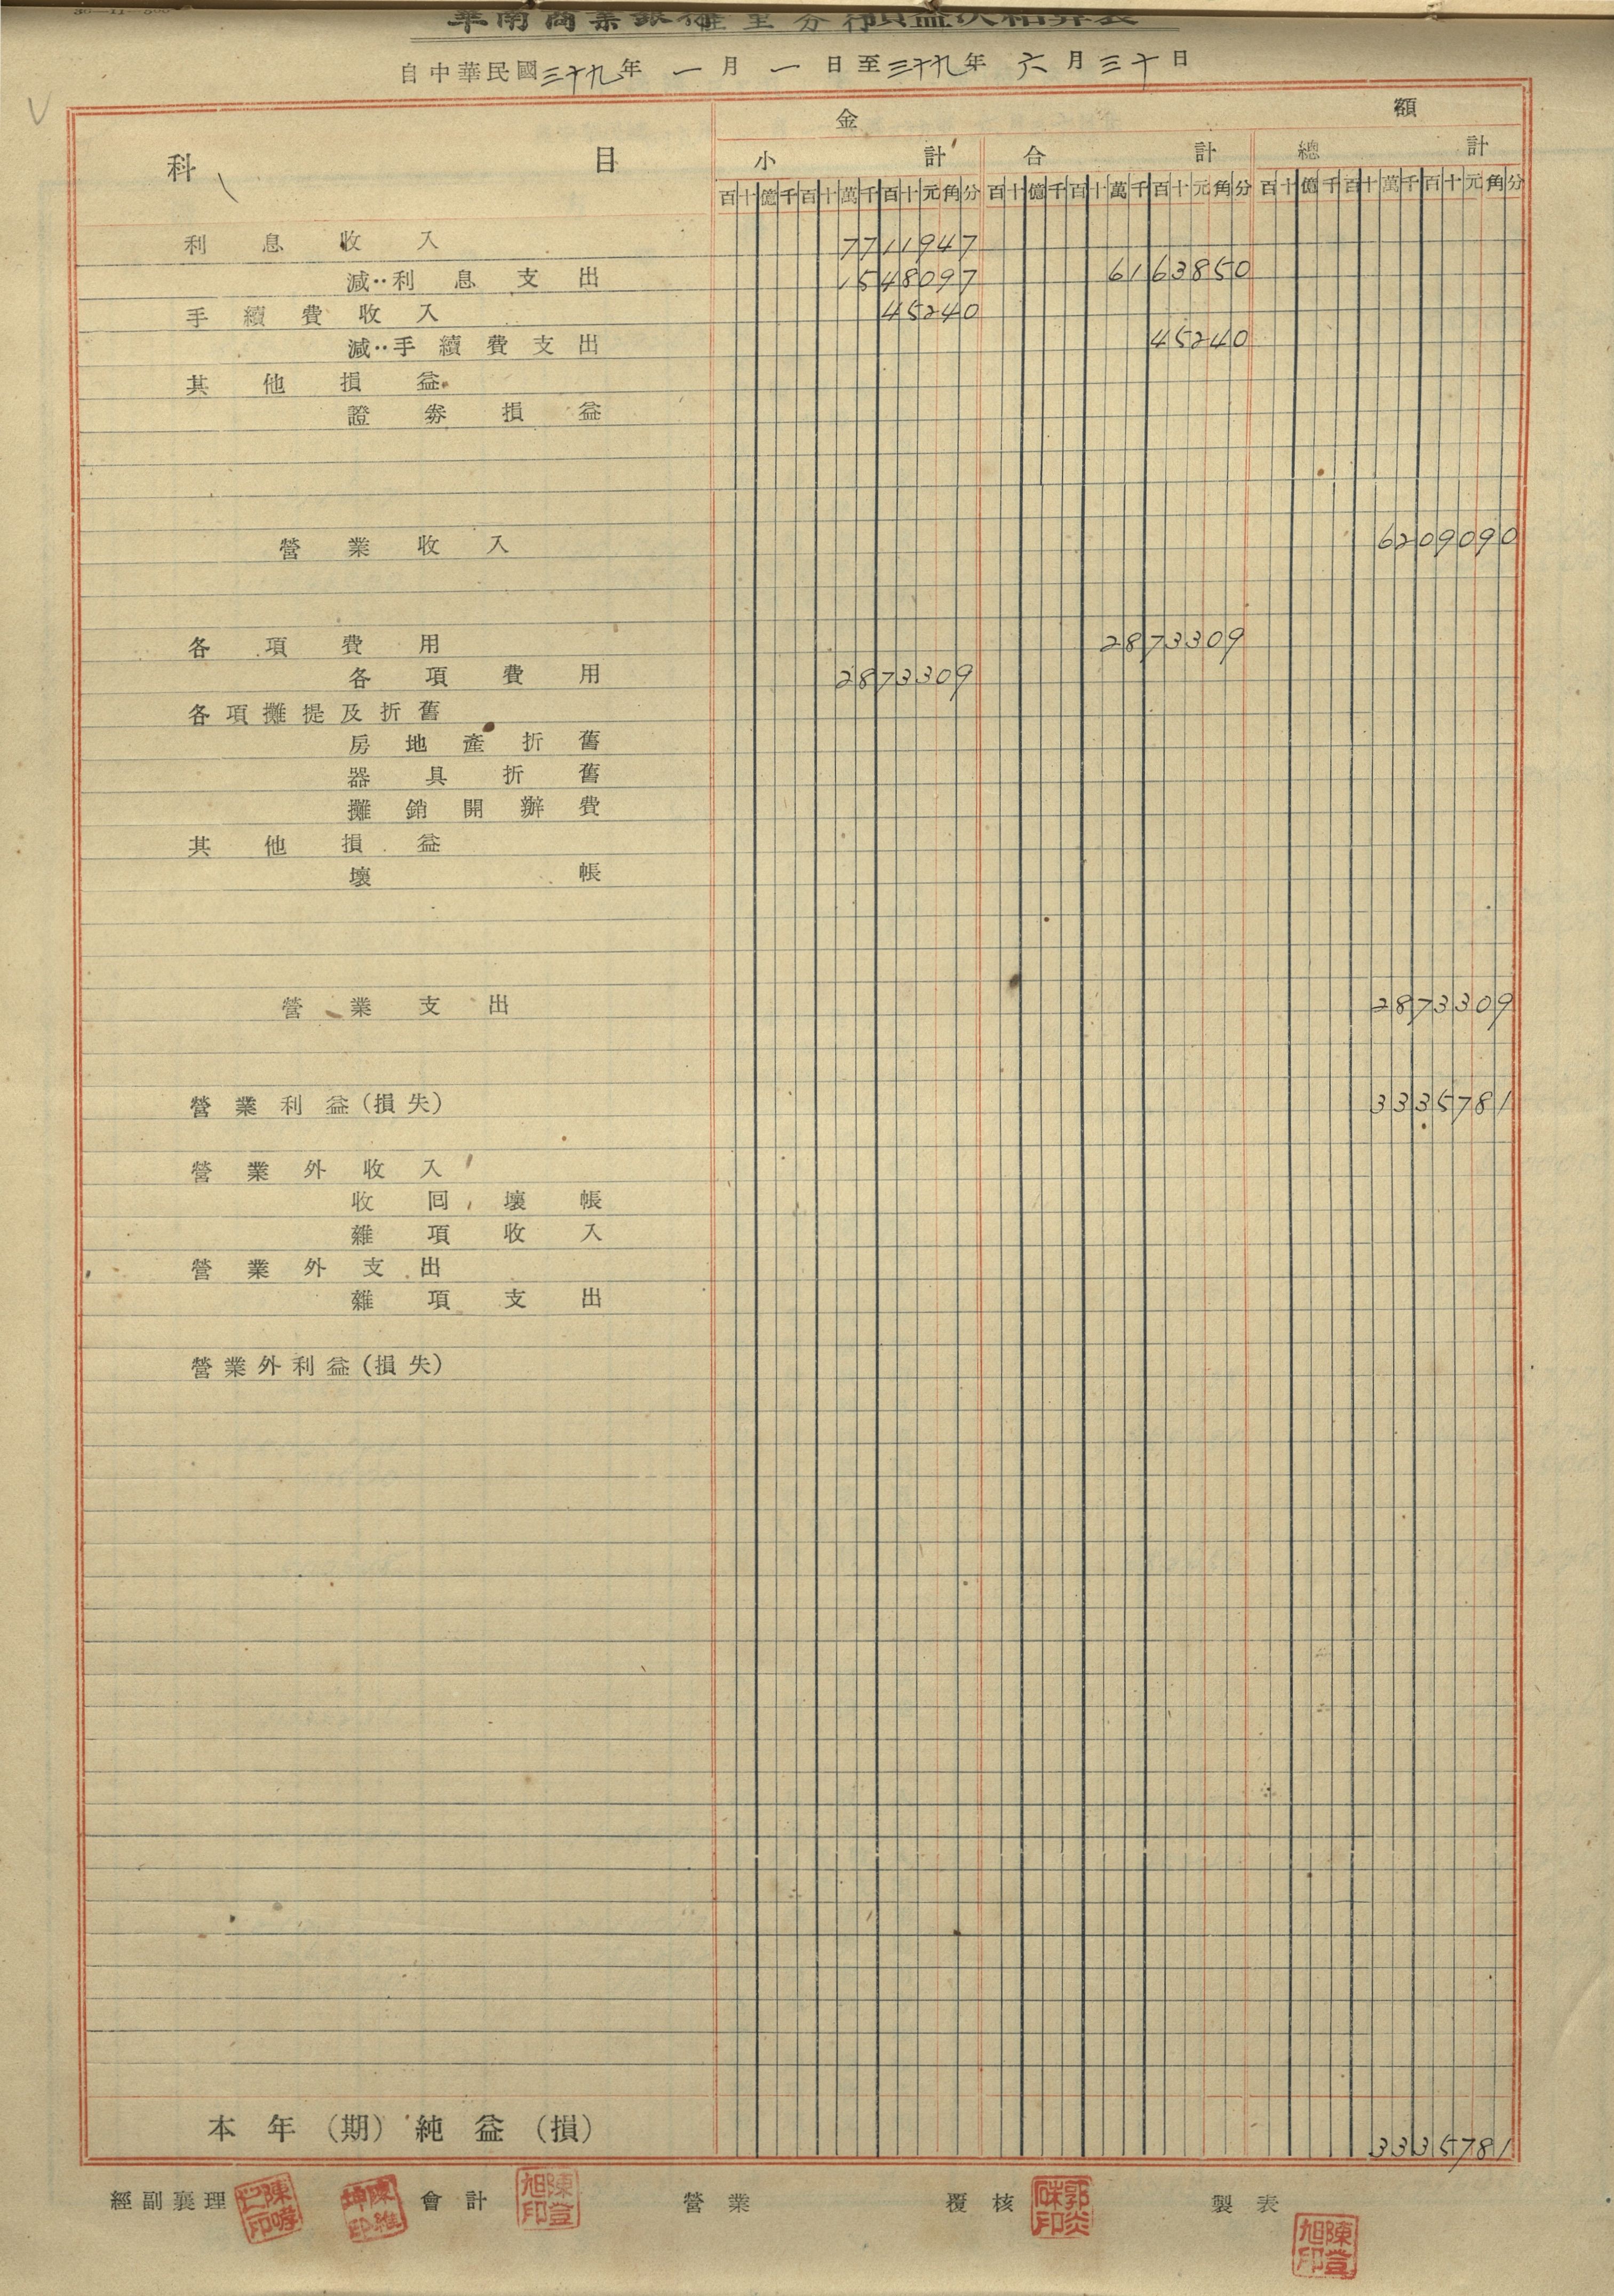 華南商業銀行 分行損益決結算表
自中華民國三十九年一月一日至三十九年六月三十日
科目 金額
小計 合計 總計
百十億千百十萬千百十元角分 百十億千百十萬千百十元角分 百十億千百十萬千百十元角分
利息收入 7711947
減:利息支出 1548097 6163850
手續費收入 45240
減:手續費支出 45240
其他損益
證券損益
營業收入 6209090
各項費用 2873309
各項費用 2873309
各項攤提及折舊
房地產折舊
器具折舊
攤銷開辦費
其他損益
壞帳
營業支出 2873309
營業利益(損失) 3335781
營業外收入
收回壞帳
雜項收入
營業外支出
雜項支出
營業外利益(損失)
本年(期)純益(損) 3335781
經副襄理 會計 陳登旭印 營業 覆核 製表 陳登旭印